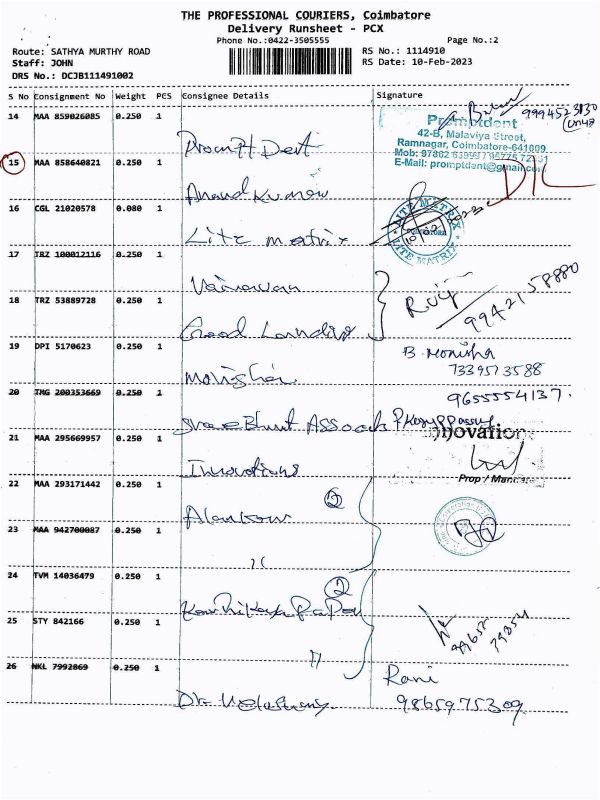 THE PROFESSIONAL COURIERS, Coimbatore
Delivery Runsheet - PCX
Phone No.:0422-3505555
Page No.:2
Route: SATHYA MURTHY ROAD
RS No.: 1114910
Staff: JOHN
RS Date: 10-Feb-2023
DRS No.: DCJB111491002
S No Consignment No Weight PCS Consignee Details Signature
14 MAA 859026085 0.250 1
9994523130
Promptdent
42-B, Malaviya Street,
Ramnagar, Coimbatore-641009.
E-Mail: promptdent@gmail.com
15 MAA 858640821 0.250 1
Anand Kumar
16 CGL 21020578 0.080 1
Lite matrix
LITE MATRIX
17 TRZ 100012116 0.250 1
18 TRZ 53889728 0.250 1
9942158880
19 DPI 5170623 0.250 1
B. Monisha
7339573588
20 TMG 200353669 0.250 1
9655554137.
21 MAA 295669957 0.250 1
Innovations
22 MAA 293171442 0.250 1
2
23 MAA 942700087 0.250 1
24 TVM 14036479 0.250 1
2
25 STY 842166 0.250 1
26 NKL 7992869 0.250 1
Rani
9865975309